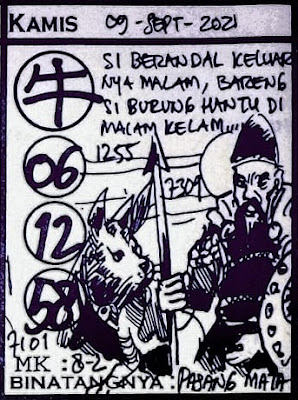 KAMIS 09-SEPT-2021
SI BERANDAL KELUAR
NYA MALAM, BARENG
SI BURUNG HANTU DI
MALAM KELAM....
牛
06
12
58
1255
7309
7101
MK : 8-2
BINATANGNYA : PASANG MATA